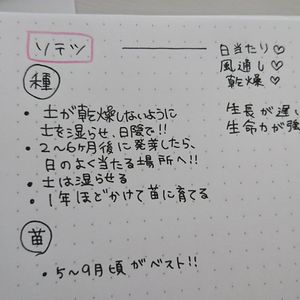 ソテツ
日当たり♡
風通し♡
乾燥♡
種
生長が遅い
生命力が強
・土が乾燥しないように
土を湿らせ、日陰で!!
・2〜6ヶ月後に発芽したら、
日のよく当たる場所へ!!
・土は湿らせる
・1年ほどかけて苗に育てる
苗
・5〜9月頃がベスト!!